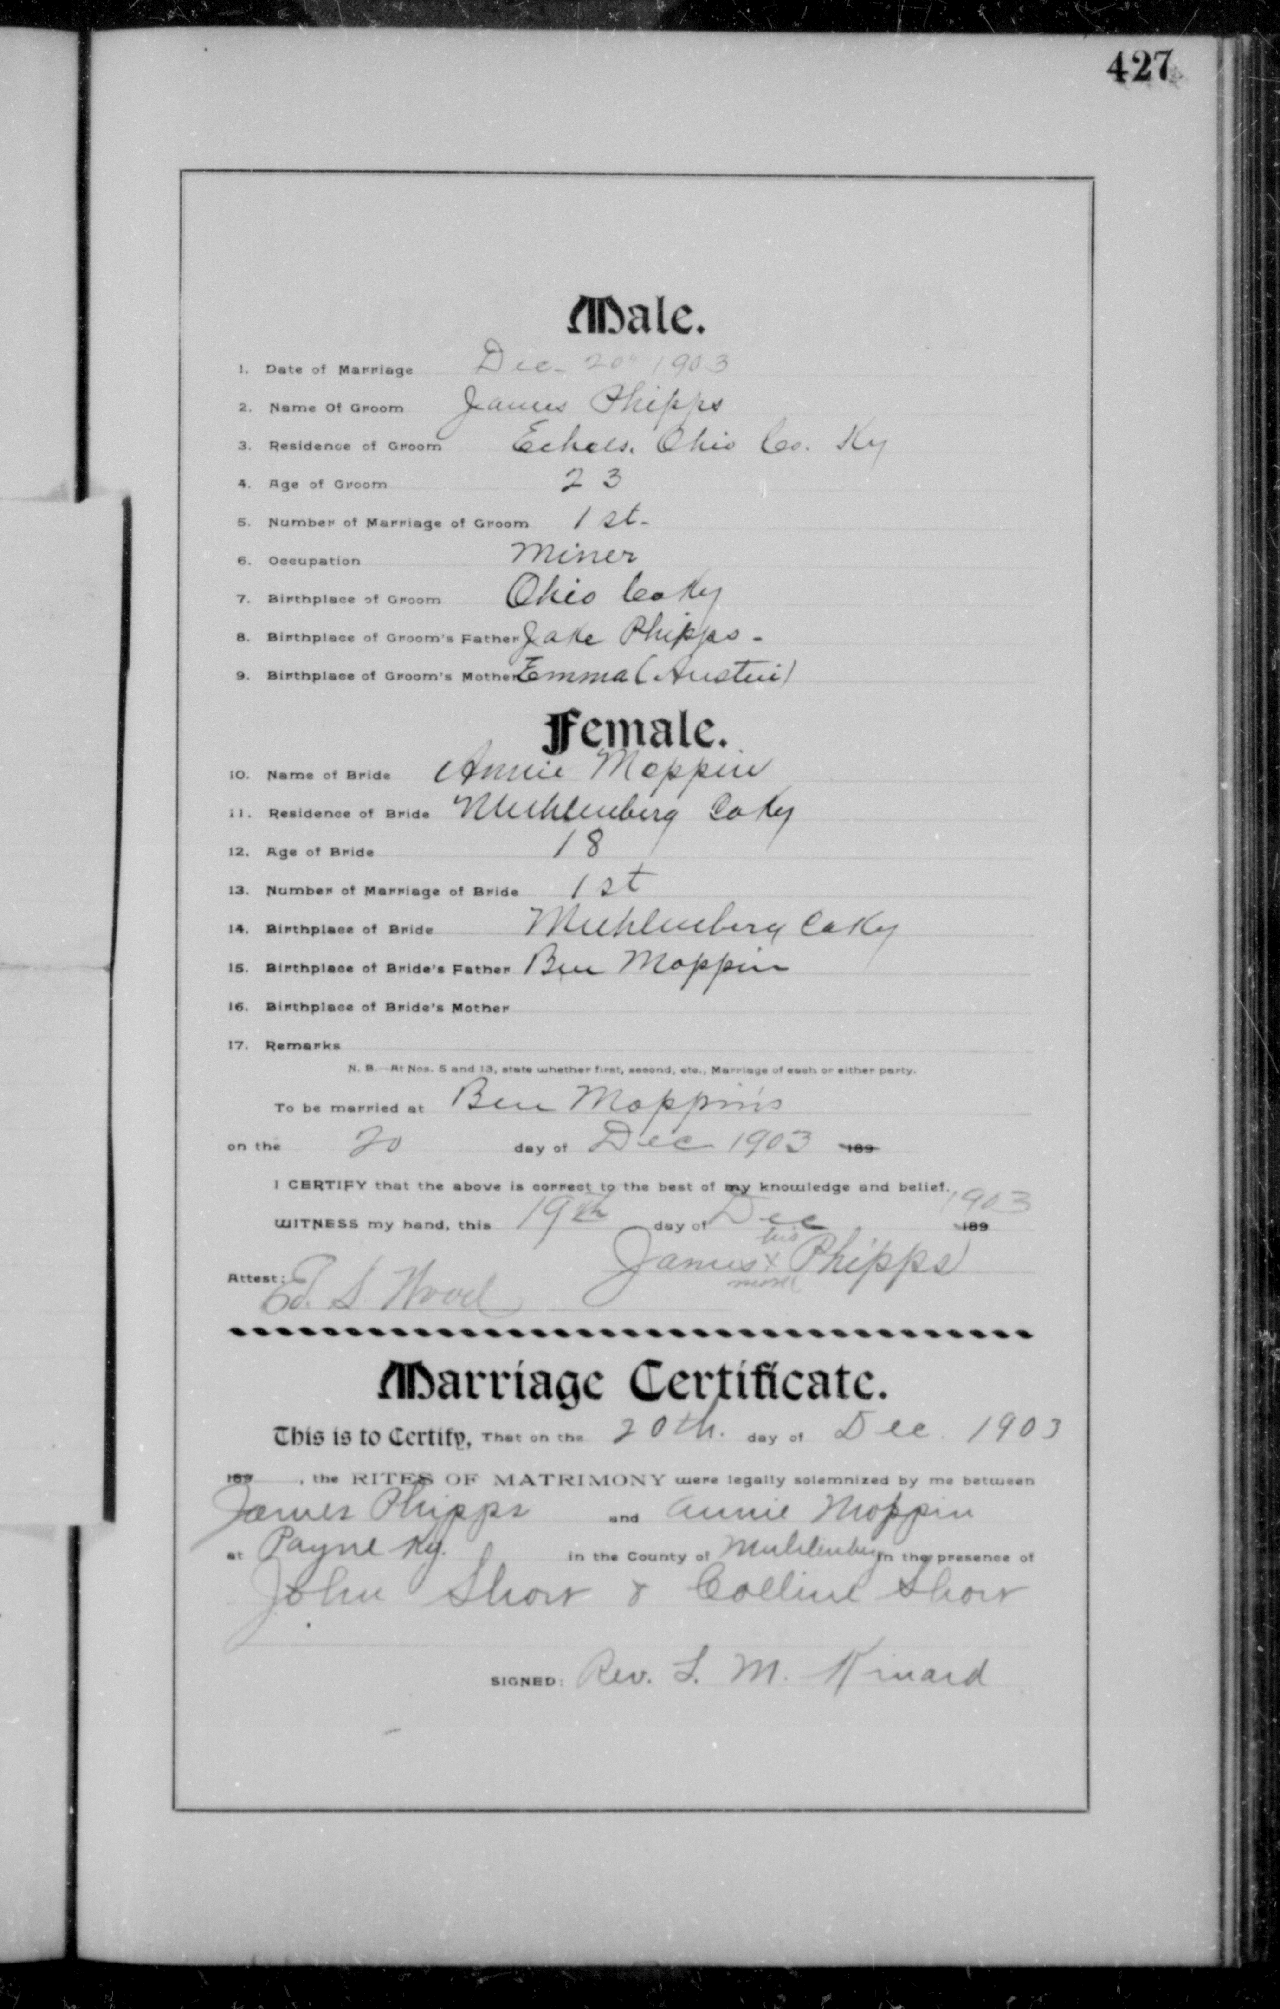 427
Male.
1. Date of Marriage Dec. 20th 1903
2. Name Of Groom James Phipps
3. Residence of Groom Echols, Ohio Co. Ky
4. Age of Groom 23
5. Number of Marriage of Groom 1st-
6. Occupation Miner
7. Birthplace of Groom Ohio Co Ky
8. Birthplace of Groom's Father Jake Phipps -
9. Birthplace of Groom's Mother Emma (Austin)
Female.
10. Name of Bride Annie Moppin
11. Residence of Bride Muhlenberg Co Ky
12. Age of Bride 18
13. Number of Marriage of Bride 1st
14. Birthplace of Bride Muhlenberg Co Ky
15. Birthplace of Bride's Father Ben Moppin
16. Birthplace of Bride's Mother
17. Remarks
N. B.—At Nos. 5 and 13, state whether first, second, etc., Marriage of each or either party.
To be married at Ben Moppin's
on the 20 day of Dec 1903 189
I CERTIFY that the above is correct to the best of my knowledge and belief.
WITNESS my hand, this 19th day of Dec 1903 189
his
James x Phipps
mark
Attest: Ed. S Wood
Marriage Certificate.
This is to Certify, That on the 20th. day of Dec. 1903
189 , the RITES OF MATRIMONY were legally solemnized by me between
James Phipps and Annie Moppin
at Payne Ky. in the County of Muhlenberg in the presence of
John Short & Colline Short
SIGNED: Rev. L. M. Kinard